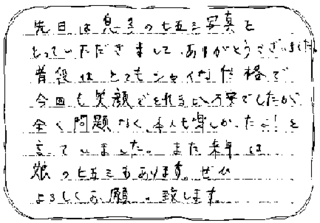 先日は息子の七五三写真を
とっていただきまして、ありがとうございました。
普段はとてもシャイな性格で
今回も笑顔でとれるか不安でしたが
全く問題なく、本人も楽しかったー!と
言っていました。また来年は
娘の七五三もあります。ぜひ
よろしくお願い致します。